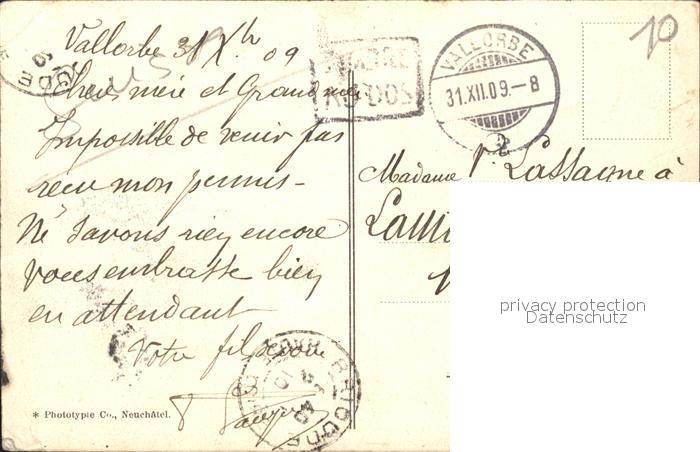 Vallorbe 31 Xbr 09
Chère mère et Grand mère
Impossible de venir pas
reçu mon permis -
Ne savons rien encore
vous embrasse bien
en attendant
Votre fils
* Phototypie Co., Neuchâtel.
TIMBRE
AU DOS
VALLORBE
31.XII.09.-8
10
Madame Vve Lassagne à
privacy protection
Datenschutz
BRIOUDE